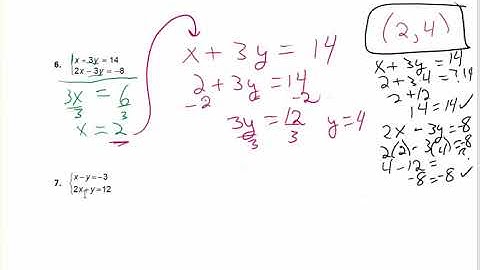 6. { x + 3y = 14
2x - 3y = -8
3x = 6
3 3
x = 2
x + 3y = 14
2 + 3y = 14
-2 -2
3y = 12
3 3
y = 4
(2, 4)
x + 3y = 14
2 + 3·4 = ? 14
2 + 12
14 = 14 ✓
2x - 3y = -8
2(2) - 3(4) = -8
4 - 12 = ?
-8 = -8 ✓
7. { x - y = -3
2x + y = 12